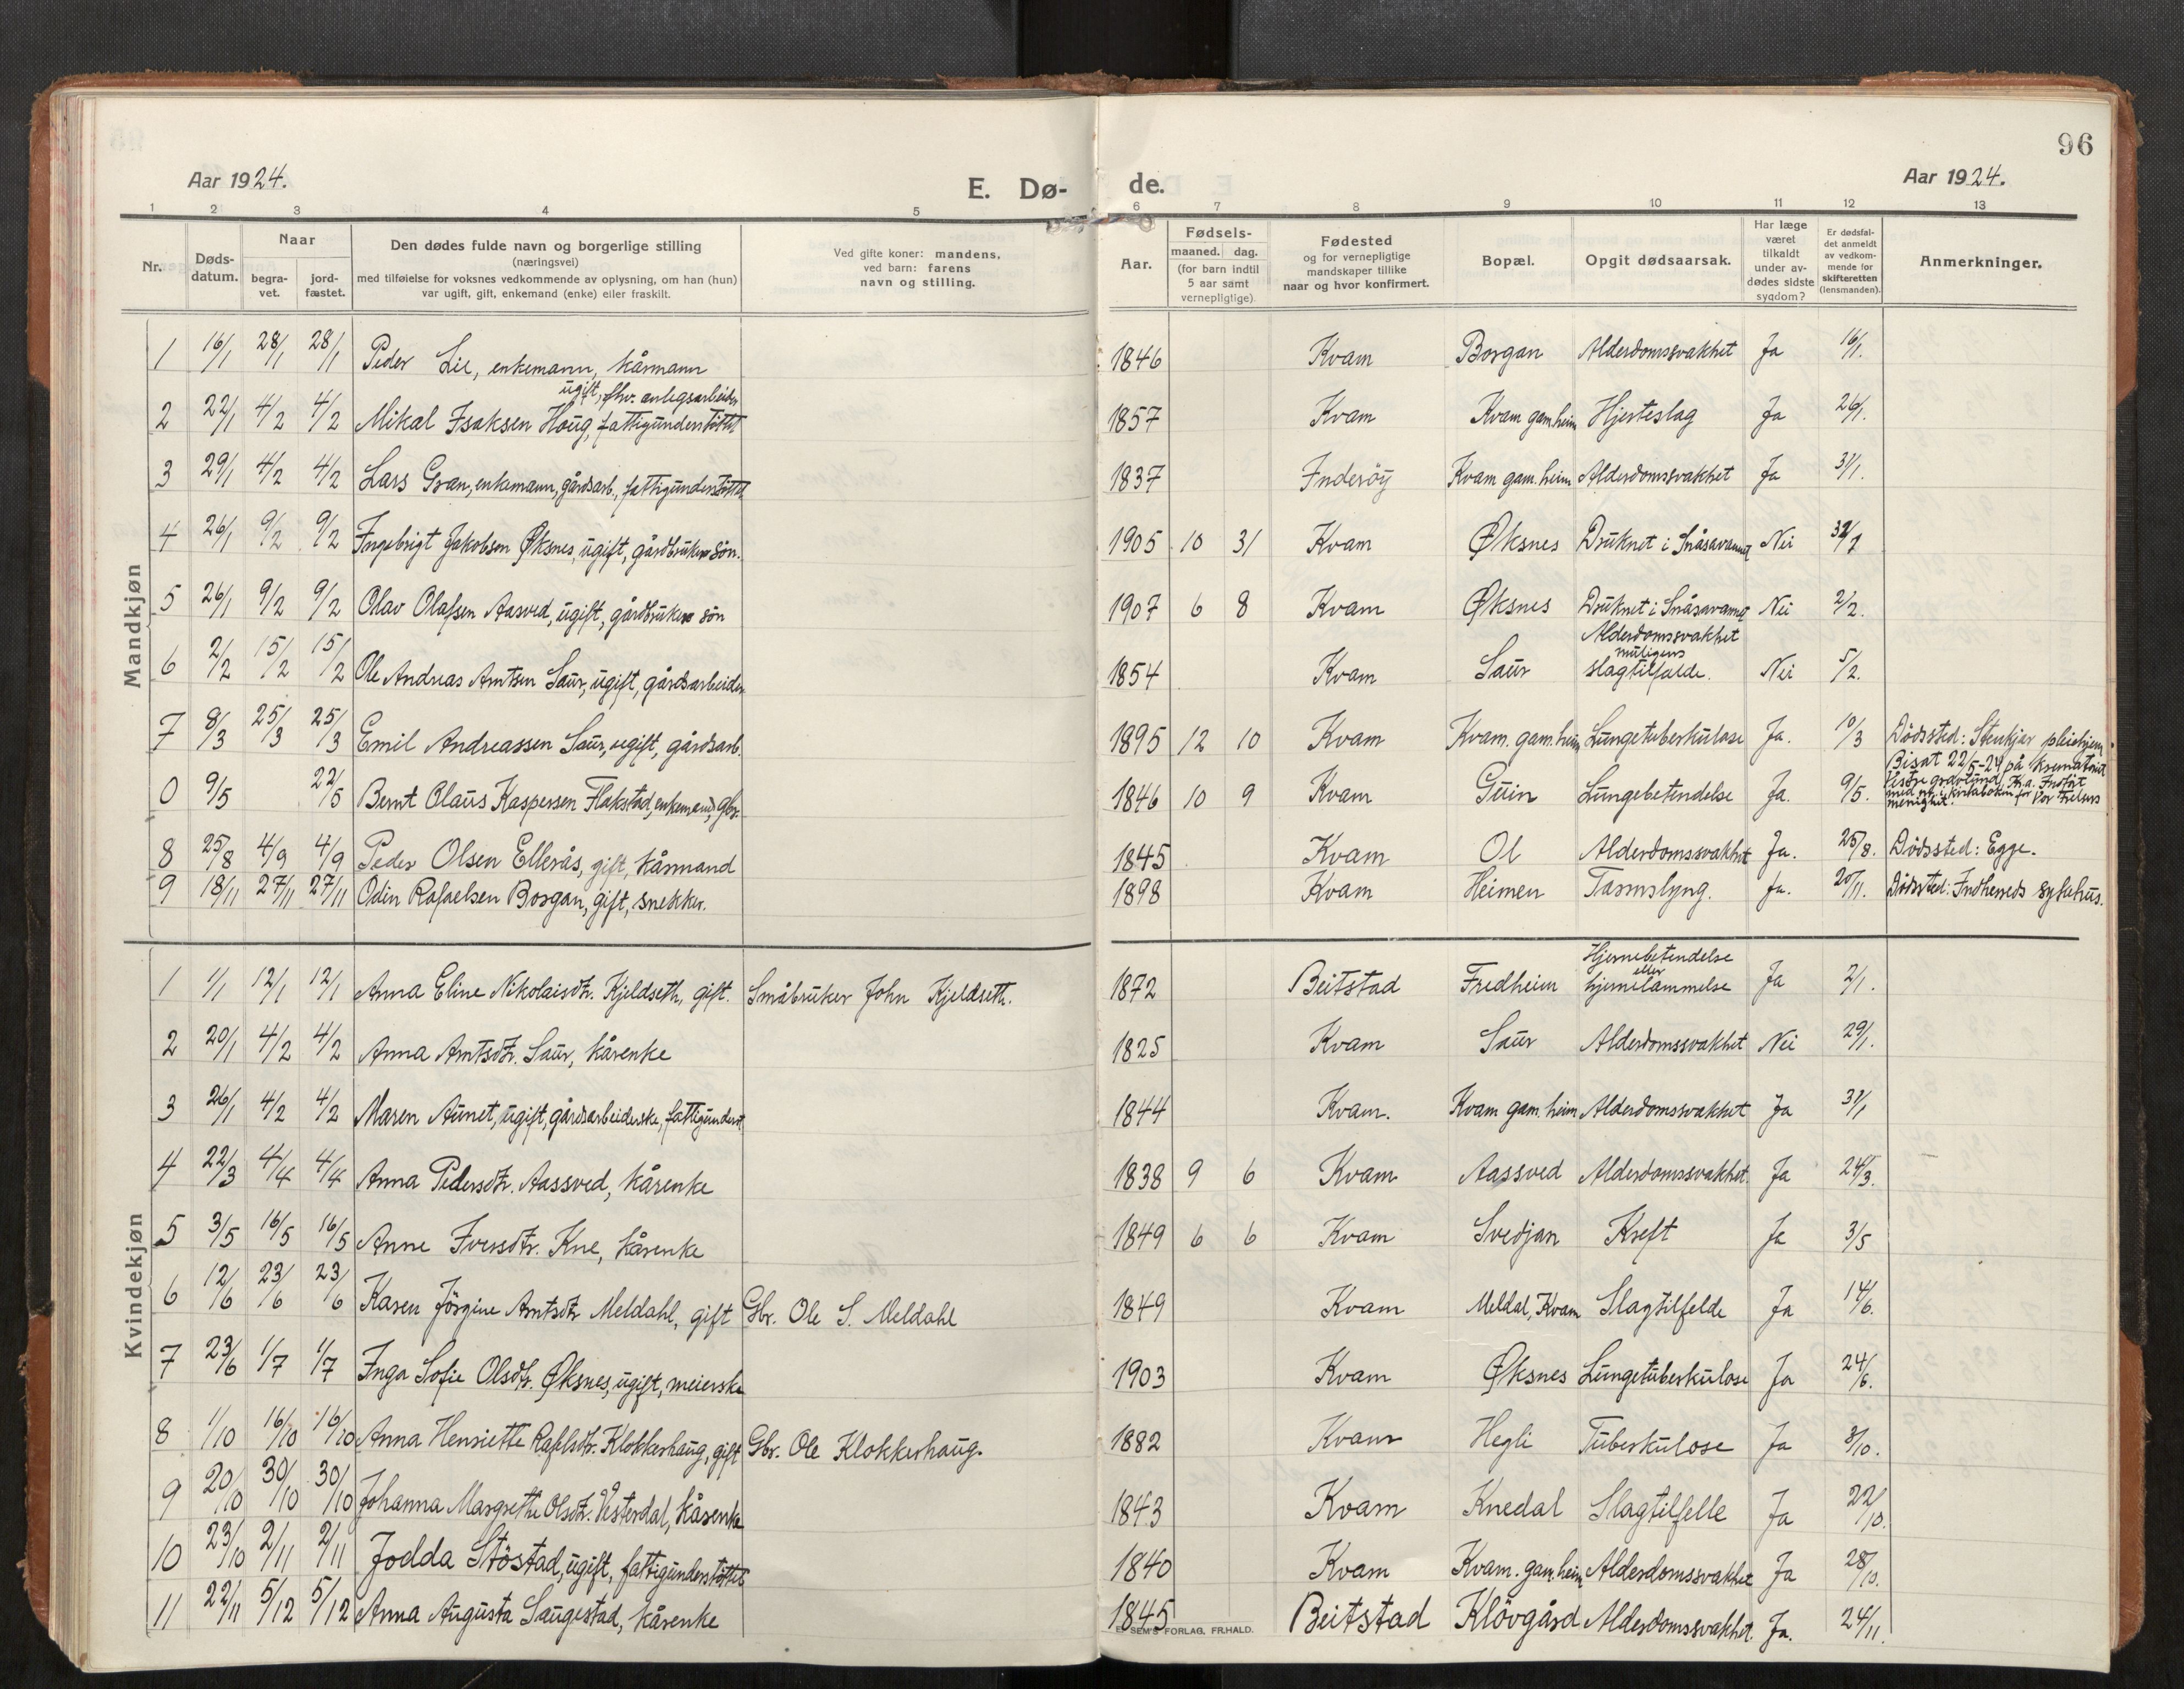 96
Aar 1924.
E. Dø-
de.
Aar 1924.
1 2 3 4 5 6 7 8 9 10 11 12 13
Nr.
Døds-
datum.
Naar
begra-
vet.
jord-
fæstet.
Den dødes fulde navn og borgerlige stilling
(næringsvei)
med tilføielse for voksnes vedkommende av oplysning, om han (hun)
var ugift, gift, enkemand (enke) eller fraskilt.
Ved gifte koner: mandens,
ved barn: farens
navn og stilling.
Aar.
Fødsels-
maaned. dag.
(for barn indtil
5 aar samt
vernepligtige).
Fødested
og for vernepligtige
mandskaper tillike
naar og hvor konfirmert.
Bopæl.
Opgit dødsaarsak.
Har læge
været
tilkaldt
under av-
dødes sidste
sygdom?
Er dødsfal-
det anmeldt
av vedkom-
mende for
skifteretten
(lensmanden).
Anmerkninger.
Mandkjøn
1 16/1 28/1 28/1 Peder Lie, enkemann, kårmann 1846 Kvam Borgan Alderdomssvakhet Ja 16/1.
ugift, fhv. anlegsarbeider
2 22/1 4/2 4/2 Mikal Isaksen Houg, fattigunderstöttet 1857 Kvam Kvam gam.heim Hjerteslag Ja 26/1.
3 29/1 4/2 4/2 Lars Gran, enkemann, gårdsarb., fattigunderstöttet 1837 Inderöy Kvam gam. heim Alderdomssvakhet Ja 31/1.
4 26/1 9/2 9/2 Ingebrigt Jakobsen Øksnes, ugift, gårdbrukersön. 1905 10 31 Kvam Øksnes Druknet i Snåsavannet Nei
5 26/1 9/2 9/2 Olav Olafsen Aasved, ugift, gårdbrukersön 1907 6 8 Kvam Øksnes Druknet i Snåsavannet Nei 2/2.
6 2/2 15/2 15/2 Ole Andreas Arntsen Saur, ugift, gårdsarbeider 1854 Kvam Saur Alderdomssvakhet
muligens
slagtilfalde. Nei 5/2.
7 8/3 25/3 25/3 Emil Andreassen Saur, ugift, gårdsarb. 1895 12 10 Kvam Kvam. gam.heim Lungetuberkulose Ja. 10/3 Dödssted: Stenkjær pleiehjem.
0 9/5 22/5 Bernt Olaus Kaspersen Flakstad, enkemand, gbr. 1846 10 9 Kvam Guin Lungebetendelse Ja. 9/5. Bisat 22/5-24 på krematoriet
Vestre gravlund, Kr.a. Indfört
med nr. i kirkeboken for Vor Frelsers
menighet.
8 25/8 4/9 4/9 Peder Olsen Ellerås, gift, kårmand 1845 Kvam Ol Alderdomssvakhet Ja. 25/8. Dödssted: Egge.
9 18/11 27/11 27/11 Odin Rafaelsen Borgan, gift, snekker. 1898 Kvam Heimen Tarmslyng. Ja. 20/11. Dödssted: Indherreds sykehus.
Kvindekjøn
1 1/1 12/1 12/1 Anna Eline Nikolaisdtr. Kjeldseth, gift. Småbruker John Kjeldseth. 1872 Beitstad Fredheim Hjernebetendelse
eller
hjernelammelse Ja 2/1.
2 20/1 4/2 4/2 Anna Arntsdtr. Saur, kårenke 1825 Kvam Saur Alderdomssvakhet Nei 29/1.
3 26/1 4/2 4/2 Maren Aunet, ugift, gårdsarbeiderske, fattigunderst. 1844 Kvam. Kvam gam. heim Alderdomssvakhet Ja 31/1
4 22/3 4/4 4/4 Anna Pedersdtr. Aassved, kårenke 1838 9 6 Kvam Aassved Alderdomssvakhet. Ja 24/3.
5 3/5 16/5 16/5 Anne Iversdtr. Kne, kårenke 1849 6 6 Kvam Svedjan Kreft Ja 3/5
6 12/6 23/6 23/6 Karen Jörgine Arntsdtr Meldahl, gift Gbr. Ole S. Meldahl 1849 Kvam Meldal, Kvam Slagtilfelde Ja 14/6.
7 23/6 1/7 1/7 Inga Sofie Olsdtr. Øksnes, ugift, meierske 1903 Kvam Øksnes Lungetuberkulose Ja 24/6.
8 1/10 16/10 16/10 Anna Henriette Rafelsdtr. Klokkerhaug, gift Gbr. Ole Klokkerhaug. 1882 Kvam Hegli Tuberkulose Ja 3/10.
9 20/10 30/10 30/10 Johanna Margrethe Olsdtr. Vesterdal, kårenke 1843 Kvam Knedal Slagtilfelle Ja 22/10.
10 23/10 2/11 2/11 Jodda Stöstad, ugift, fattigunderstöttet 1840 Kvam Kvam. gam.heim Alderdomssvakhet Ja 28/10.
11 22/11 5/12 5/12 Anna Augusta Saugestad, kårenke 1845 Beitstad Klövgård Alderdomssvakhet. Ja. 24/11.
E. SEM'S FORLAG, FR.HALD.